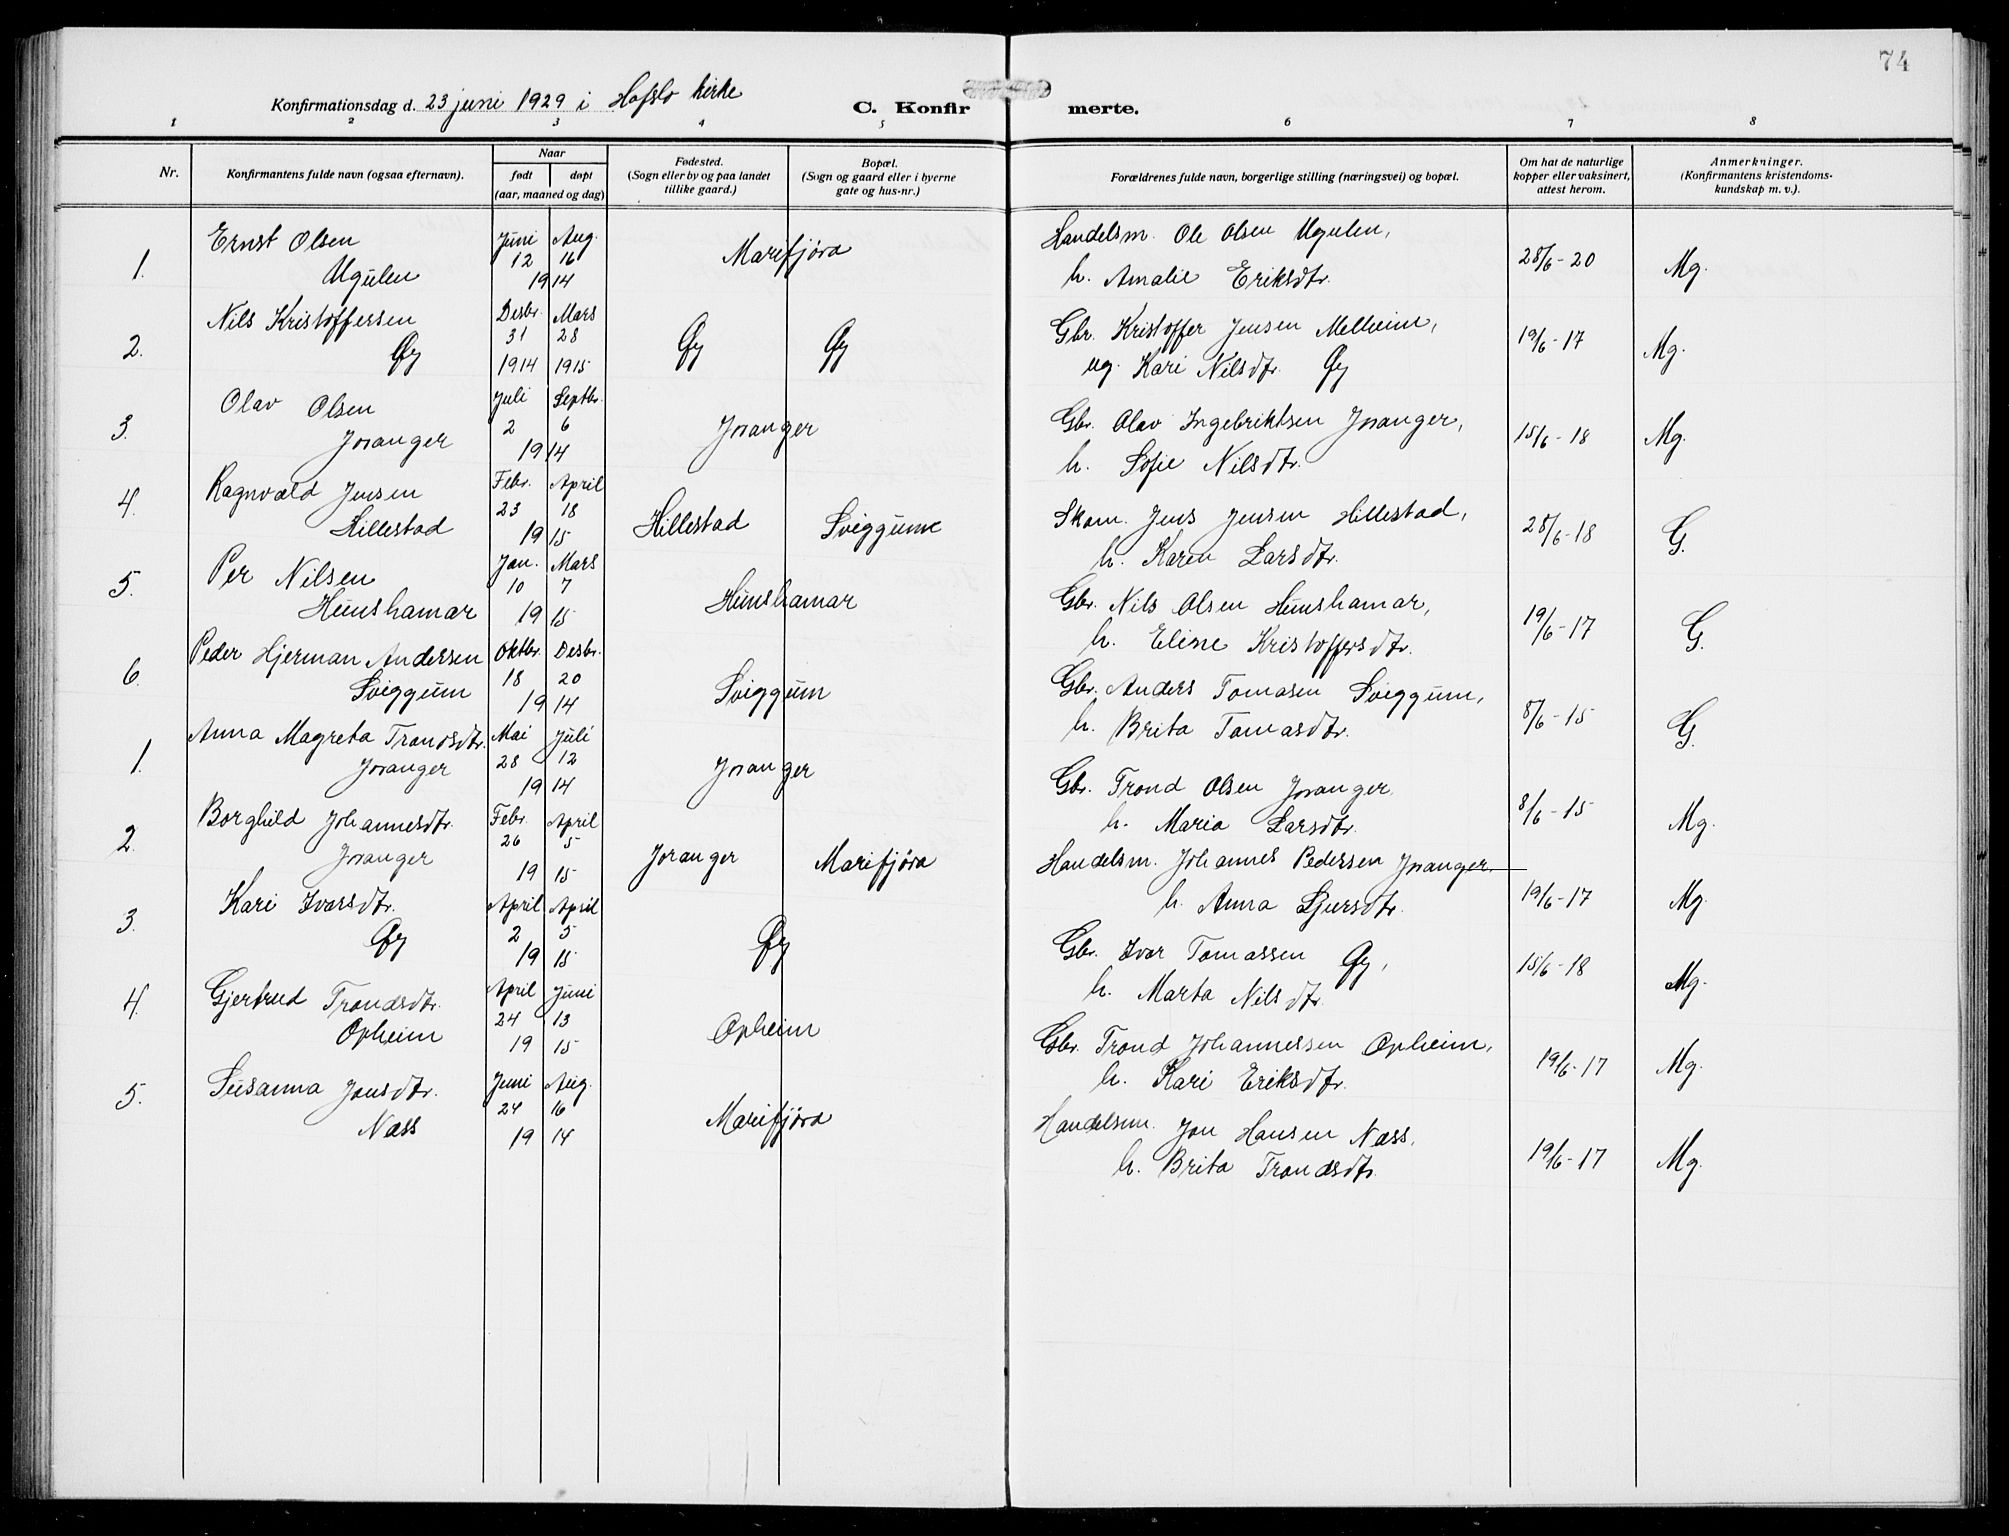 74
Konfirmationsdag d. 23 juni 1929 i Hafslo kirke
C. Konfirmerte.
1 2 3 4 5 6 7 8
Nr.
Konfirmantens fulde navn (ogsaa efternavn).
Naar
født døpt
(aar, maaned og dag)
Fødested.
(Sogn eller by og paa landet
tillike gaard.)
Bopæl.
(Sogn og gaard eller i byerne
gate og hus-nr.)
Forældrenes fulde navn, borgerlige stilling (næringsvei) og bopæl.
Om hat de naturlige
kopper eller vaksinert,
attest herom.
Anmerkninger.
(Konfirmantens kristendoms-
kundskap m. v.).
1. Ernst Olsen Juni Aug. Marifjøra Handelsm. Ole Olsen Ugulen, 28/6-20 Mg.
Ugulen 12 16 h. Amalie Eriksdtr.
19 14
2. Nils Kristoffersen Desbr. Mars Gbr. Kristoffer Jensen Melheim, 19/6-17 Mg.
Øy 31 28 Øy Øy ug. Kari Nilsdtr. Øy
1914 1915
3. Olav Olsen Juli Septbr. Joranger Gbr. Olav Ingebriktsen Joranger, 15/6-18 Mg.
Joranger 2 6 h. Sofie Nilsdtr.
19 14
4. Ragnvald Jensen Febr. April Hillestad Sviggum Skom. Jens Jensen Hillestad, 28/6-18 G.
Hillestad 23 18 h. Karen Larsdtr.
19 15
5. Per Nilsen Jan. Mars Hunshamar Gbr. Nils Olsen Hunshamar, 19/6-17 G.
Hunshamar 10 7 h. Eline Kristoffersdtr.
19 15
6. Peder Hjerman Andersen Oktbr. Desbr. Sviggum Gbr. Anders Tomasen Sviggum, 8/6-15 G.
Sviggum 18 20 h. Brita Tomasdtr.
19 14
1. Anna Magreta Trondsdtr. Mai Juli Joranger Gbr. Trond Olsen Joranger 8/6-15 Mg.
Joranger 28 12 h. Maria Larsdtr.
19 14
2. Borghild Johannesdtr. Febr. April Joranger Marifjøra Handelsm. Johannes Pedersen Joranger. 19/6-17 Mg.
Joranger 26 5 h. Anna Sjursdtr.
19 15
3. Kari Ivarsdtr. April April Øy Gbr. Ivar Tomassen Øy, 15/6-18 Mg.
Øy 2 5 h. Marta Nilsdtr.
19 15
4. Gjertrud Trondsdtr. April Juni Opheim Gbr. Trond Johannessen Opheim, 19/6-17 Mg.
Opheim 24 13 h. Kari Eriksdtr.
19 15
5. Susanna Jonsdtr. Juni Aug. Marifjøra Handelsm. Jon Hansen Næss, 19/6-17 Mg.
Næss 24 16 h. Brita Trondsdtr.
19 14